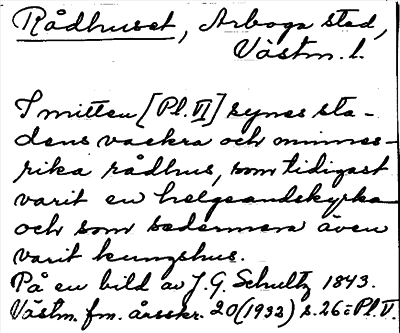 Rådhuset, Arboga stad,
Västm. l.
I mitten [Pl. VI] synes sta-
dens vackra och minnes-
rika rådhus, som tidigast
varit en helgeandskyrka
och som sedermera även
varit kungshus.
På en bild av J. G. Schultz 1843.
Västm. fm. årsskr. 20 (1932) s. 26 = Pl. V.